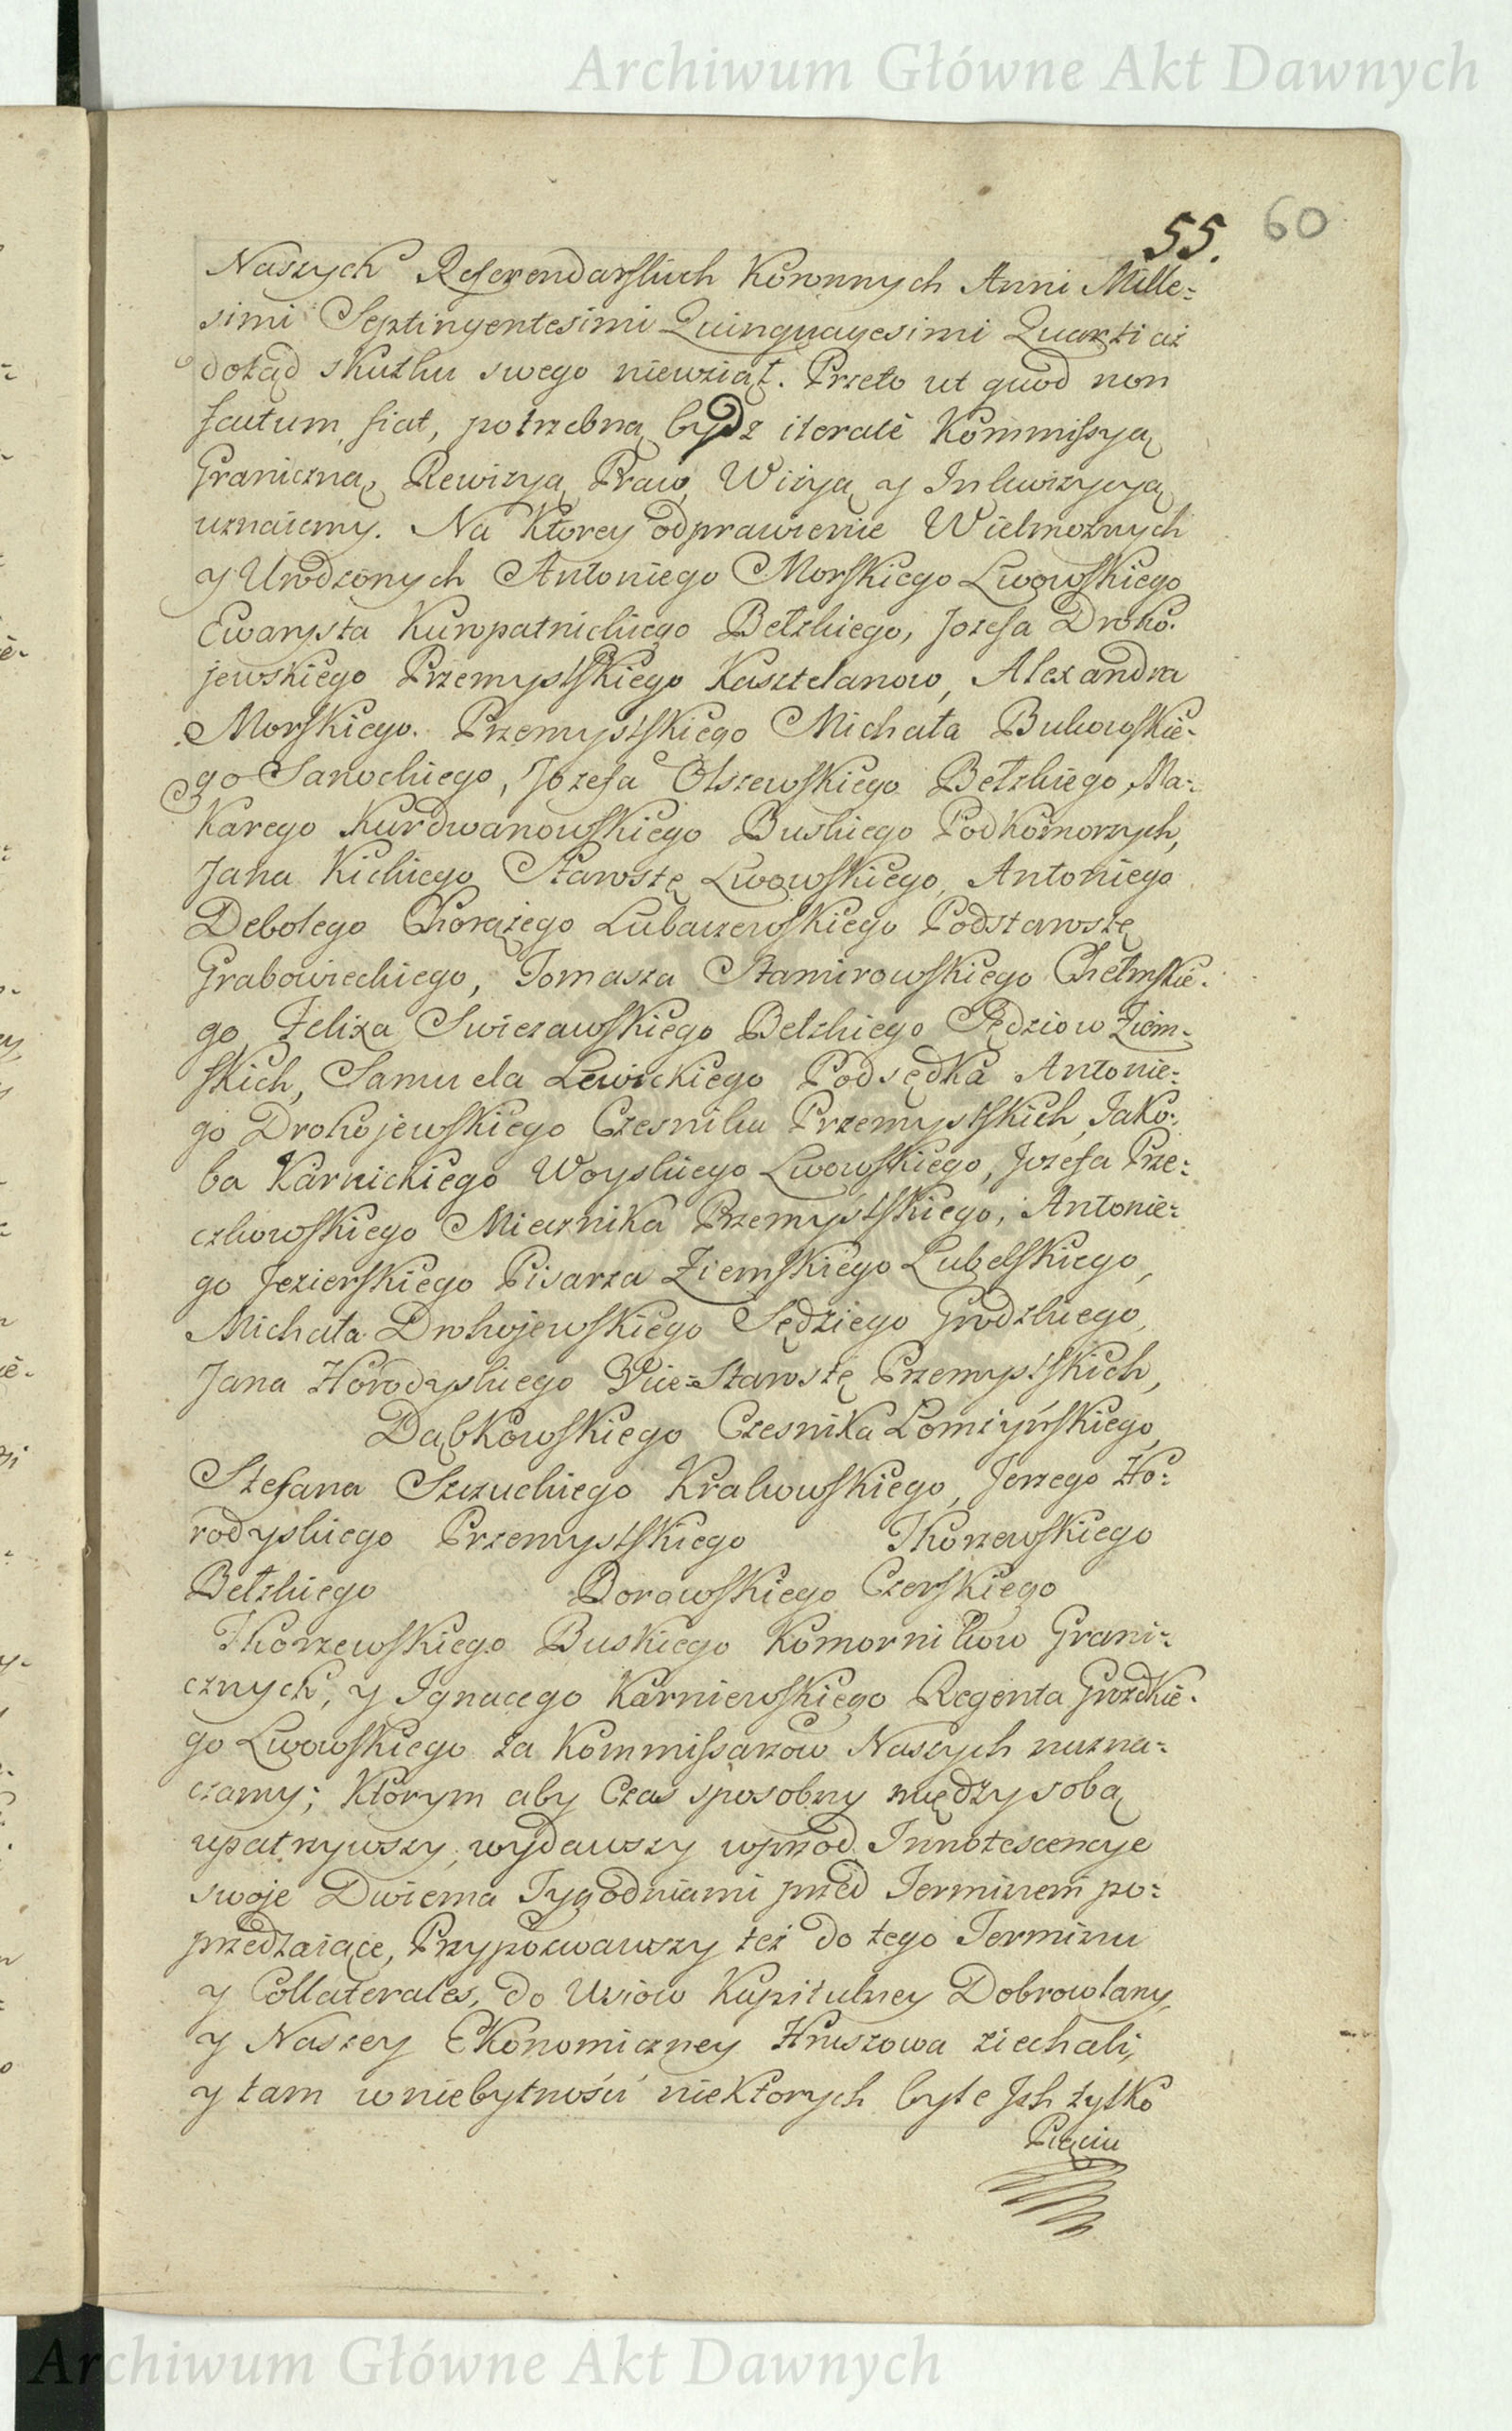 Archiwum Główne Akt Dawnych
55. 60
Naszych Referendarskich Koronnych Anni Mille=
simi Septingentesimi Quinquagesimi Quarti aż
dotąd skutku swego niewziął. Przeto ut quod non
factum, fiat, potrzebną bydz iteratè Kommissyą
Graniczną, Rewizyą Praw, Wizyą y Inkwizycyą
uznaiemy. Na Ktorey odprawienie Wielmoznych
y Urodzonych Antoniego Morskiego Lwowskiego
Ewarysta Kuropatnickiego Bełzkiego, Jozefa Droho=
jewskiego Przemyslskiego Kasztelanow, Alexandra
Morskiego Przemyslskiego Michała Bukowskie=
go Sanockiego, Jozefa Olszewskiego Bełzkiego, Ma=
Karego Kurdwanowskiego Buskiego Podkomorzych,
Jana Kickiego Starostę Lwowskiego, Antoniego
Debolego Chorążego Lubaczewskiego Podstarostę
Grabowieckiego, Tomasza Stamirowskiego Chełmskie=
go, Felixa Swiezawskiego Bełzkiego Sędziow Ziem=
skich, Samuela Lewickiego Podsędka Antonie=
go Drohojewskiego Czesnika Przemyslskich, Jako=
ba Karnickiego Woyskiego Lwowskiego, Jozefa Prze=
czkowskiego Miecznika Przemyslskiego, Antonie=
go Jezierskiego Pisarza Ziemskiego Lubelskiego,
Michała Drohojewskiego Sędziego Grodzkiego,
Jana Horodyskiego Vice=Starostę Przemyslskich,
Dąbkowskiego Czesnika Łomżyńskiego,
Stefana Szczuckiego Krakowskiego, Jerzego Ho=
rodyskiego Przemyslskiego Thorzewskiego
Bełzkiego Borowskiego Czerskiego
Thorzewskiego Buskiego Komornikow Grani=
cznych, y Ignacego Karniewskiego Regenta Grodzkie=
go Lwowskiego za Kommissarzow Naszych nazna=
czamy; Ktorym aby Czas sposobny między sobą
upatrzywszy, wydawszy wprzod Innotescencye
swoje Dwiema Tygodniami przed Terminem po=
przedzaiące, Przypozwawszy też do tego Terminu
y Collaterales, do Wsiow Kapitulney Dobrowlany,
y Naszey Ekonomiczney Hruszowa ziechali,
y tam w niebytności niektorych byle Jch tylko
Pięciu
Archiwum Główne Akt Dawnych